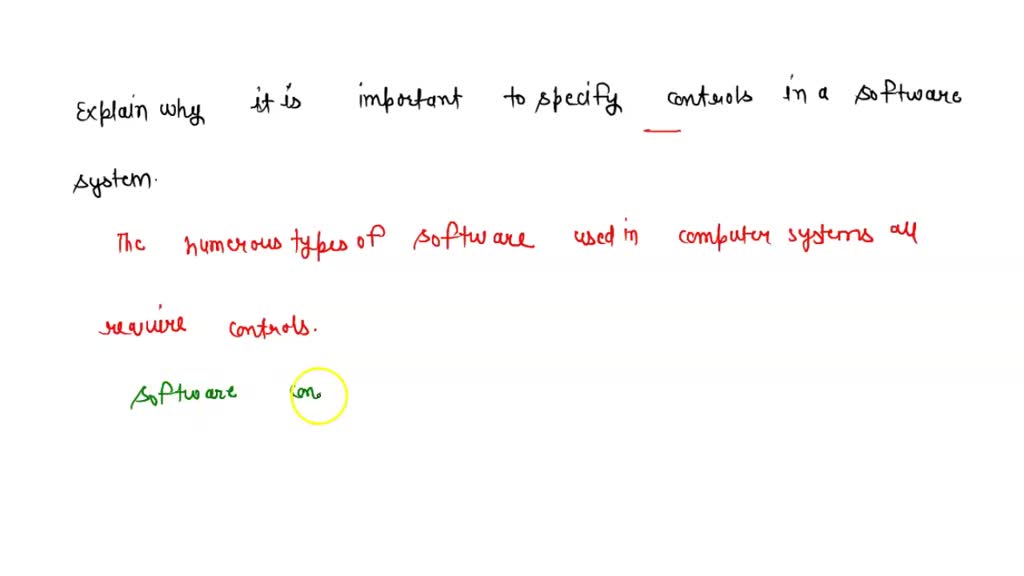 Explain why it is important to specify controls in a software
system.
The numerous types of software used in computer systems all
require controls.
software con